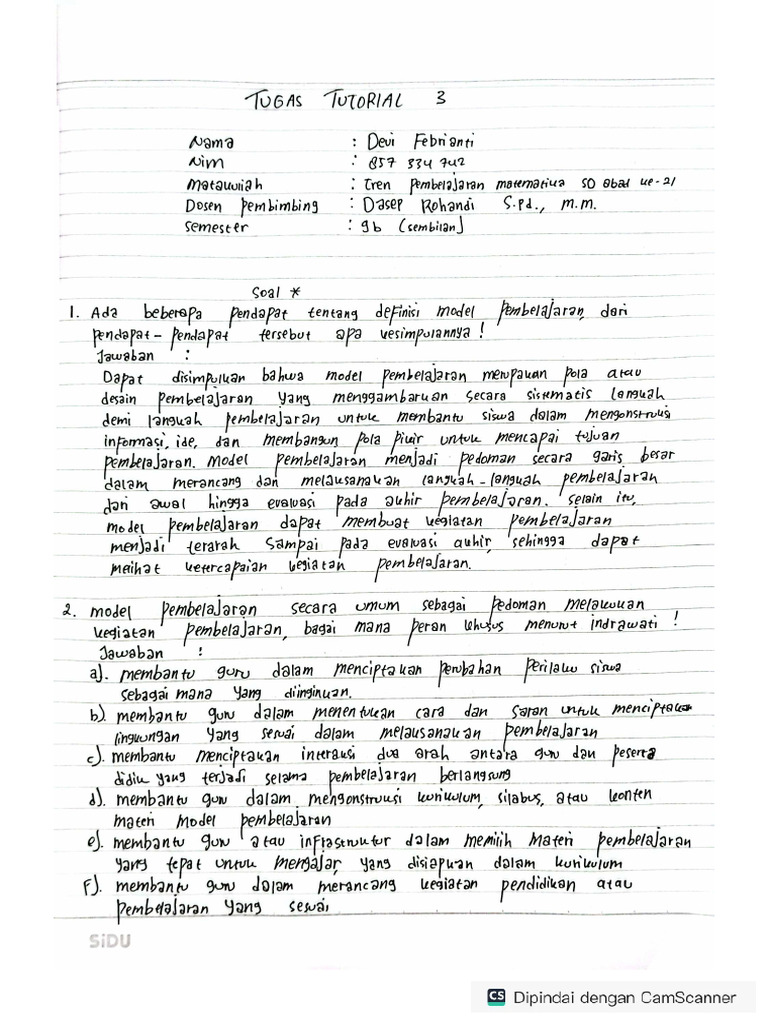 TUGAS TUTORIAL 3
Nama : Devi Febrianti
Nim : 857 334 742
Matakuliah : Tren pembelajaran matematika SD abad ke-21
Dosen pembimbing : Dasep Rohandi S.pd., m.m.
Semester : 9b (sembilan)
Soal *
1. Ada beberapa pendapat tentang definisi model pembelajaran, dari
pendapat - pendapat tersebut apa kesimpulannya !
Jawaban :
Dapat disimpulkan bahwa model pembelajaran merupakan pola atau
desain pembelajaran yang menggambarkan secara sistematis langkah
demi langkah pembelajaran untuk membantu siswa dalam mengonstruksi
informasi, ide, dan membangun pola pikir untuk mencapai tujuan
pembelajaran. Model pembelajaran menjadi pedoman secara garis besar
dalam merancang dan melaksanakan langkah-langkah pembelajaran
dari awal hingga evaluasi pada akhir pembelajaran. selain itu,
model pembelajaran dapat membuat kegiatan pembelajaran
menjadi terarah sampai pada evaluasi akhir, sehingga dapat
melihat ketercapaian kegiatan pembelajaran.
2. model pembelajaran secara umum sebagai pedoman melakukan
kegiatan pembelajaran, bagai mana peran khusus menurut indrawati !
Jawaban :
a). membantu guru dalam menciptakan perubahan perilaku siswa
sebagai mana yang diinginkan.
b). membantu guru dalam menentukan cara dan saran untuk menciptakan
lingkungan yang sesuai dalam melaksanakan pembelajaran
c). membantu menciptakan interaksi dua arah antara guru dan peserta
didik yang terjadi selama pembelajaran berlangsung
d). membantu guru dalam mengonstruksi kurikulum, silabus, atau konten
materi model pembelajaran
e). membantu guru atau infrastruktur dalam memilih materi pembelajaran
yang tepat untuk mengajar, yang disiapkan dalam kurikulum
F). membantu guru dalam merancang kegiatan pendidikan atau
pembelajaran yang sesuai
SiDU
CS Dipindai dengan CamScanner